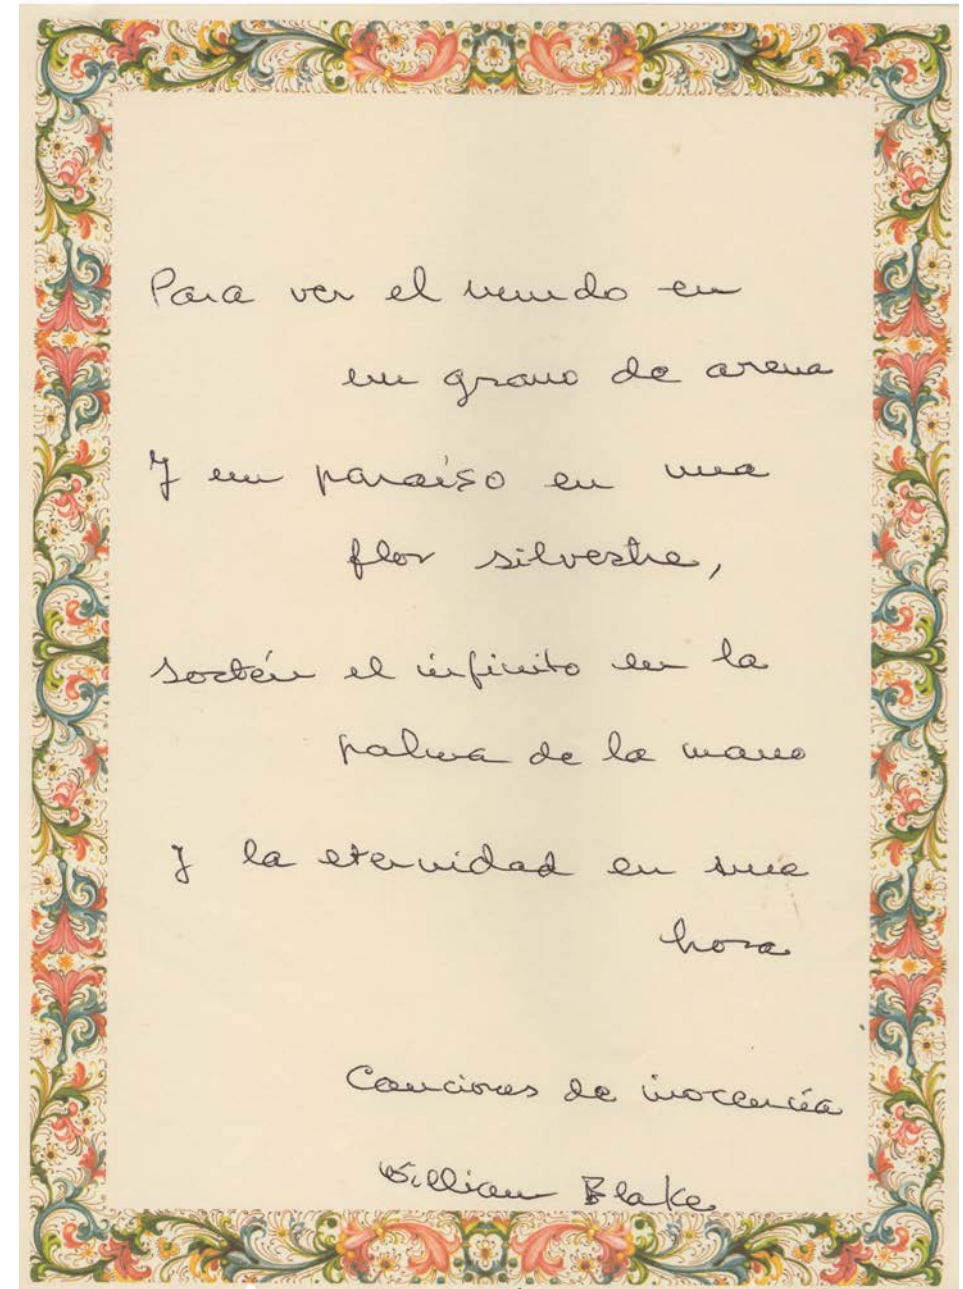 Para ver el mundo en
un grano de arena
Y un paraíso en una
flor silvestre,
sostén el infinito en la
palma de la mano
Y la eternidad en una
hora
Canciones de inocencia
William Blake